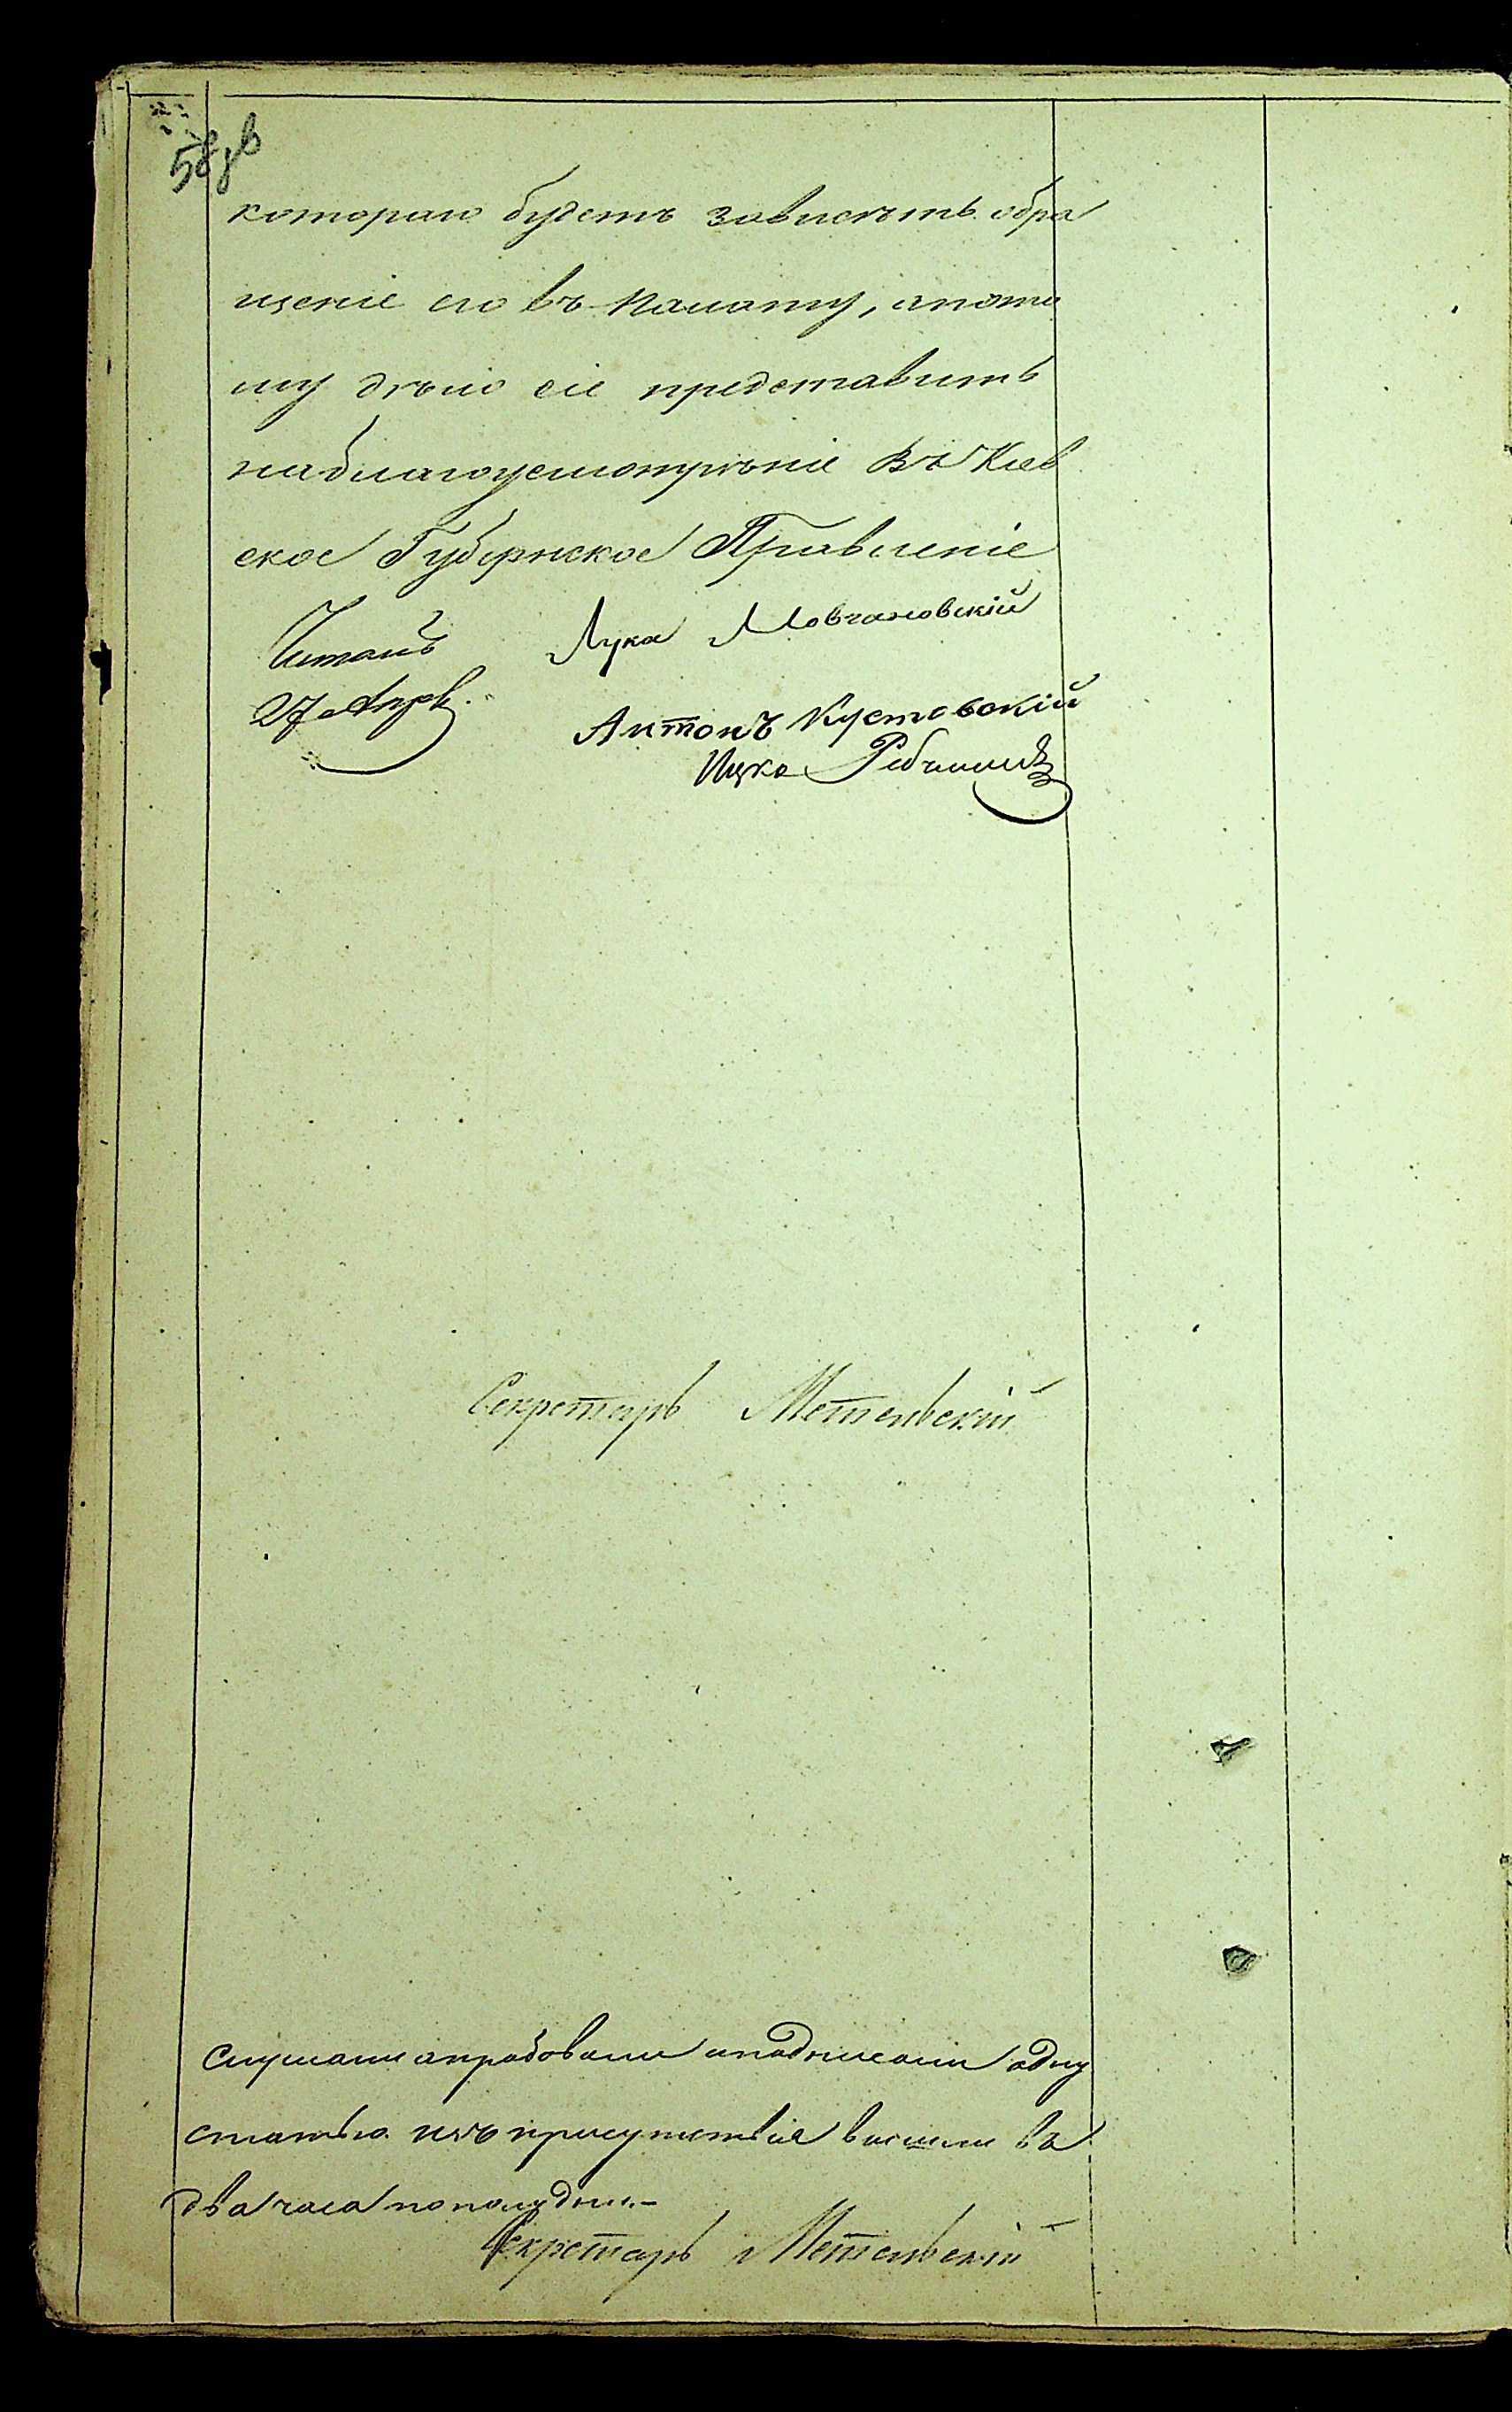 58 зв
котораго будетъ зависѣть обра
щеніе его въ Палату, апото
му дѣло сіе представить
наблагоусмотрѣніе въ Кіев
ское Губернское Правленіе
Читалъ Лука Мовчановскій
27 Апрѣ.
Антонъ Кустовскій
Ицко
Секретарь Метельскій
Слушали апробовали иподписали одну
статью изъ присутствія вышли въ
два часа пополудни.-
Секретарь Метельскій